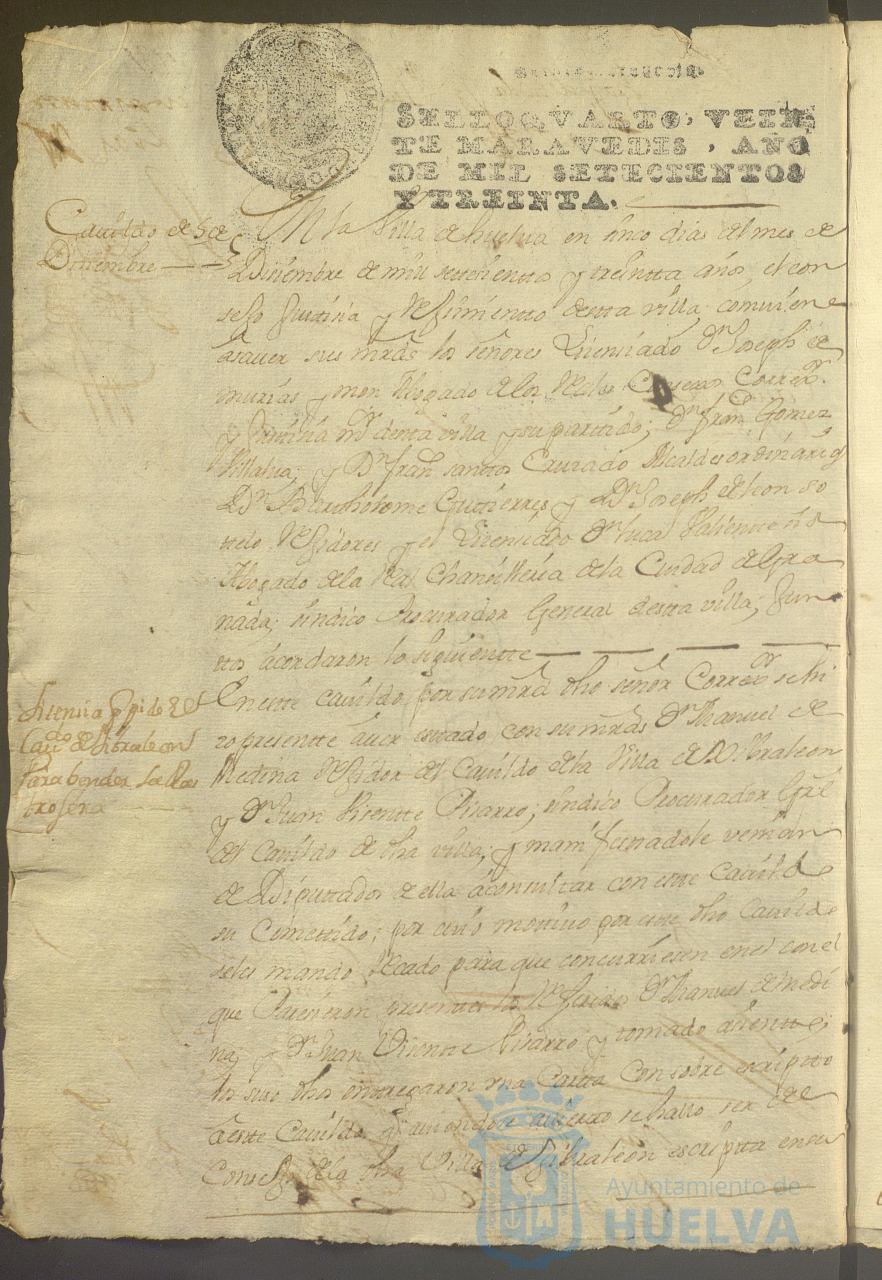 SELLO QVARTO, VEIN
TE MARAVEDIS, AÑO
DE MIL SETECIENTOS
Y TREINTA.
Cavildo de 5 de
Diziembre
En la Villa de huelva en sinco dias del mes de
Diziembre de mill setecientos y treintta años el con
sejo Justizia y Rejimiento desta villa, combiene
asaver sus mrds los señores Lizenciado Dn Joseph de
murias y mon Abogado de los Rles Consejos Correxor
y Justizia mr desta villa y su partido; Dn Franco Gomez
Villalva; y Dn Fran santtos Cruzado Alcaldes ordinarios
Dn Bartholome Gutierres y Dn Joseph de leon so
telo Rejidores y el Lizenciado Dn Luca Valiente
Abogado de la Rl Chancilleria de la Ciudad de Gra
nada; sindico Procurador General desta villa; Jun
ttos acordaron lo siguientte
Lisensia q pide el
Cavdo de Gibraleon
para bender
En este cavildo por su mrd dho señor Correxor se hi
zo presentte aver estado con su mrds Dn Manuel de
Medina Rejidor del Cavildo de la Villa de Gibraleon
y Dn Juan Visentte Pisarro; sindico Procurador Grl
del Cavildo de dha villa, y manifestadole venian
de Diputtados de ella a consulttar con este Cavildo
su Comettido; por cuio mottivo por este dho Cavildo
se les mando Recado para que concurriesen en el con el
que Vinieron presentes los Referidos Dn Manuel de medi
na; y Dn Juan Visentte Pisarro y tomado asientto;
los suso dhos entregaron una Cartta con sobre escripto
a este Cavildo y aviendose avierto se hallo ser del
Consejo de la dha Villa de Gibraleon escripta en su
Ayuntamiento de
HUELVA